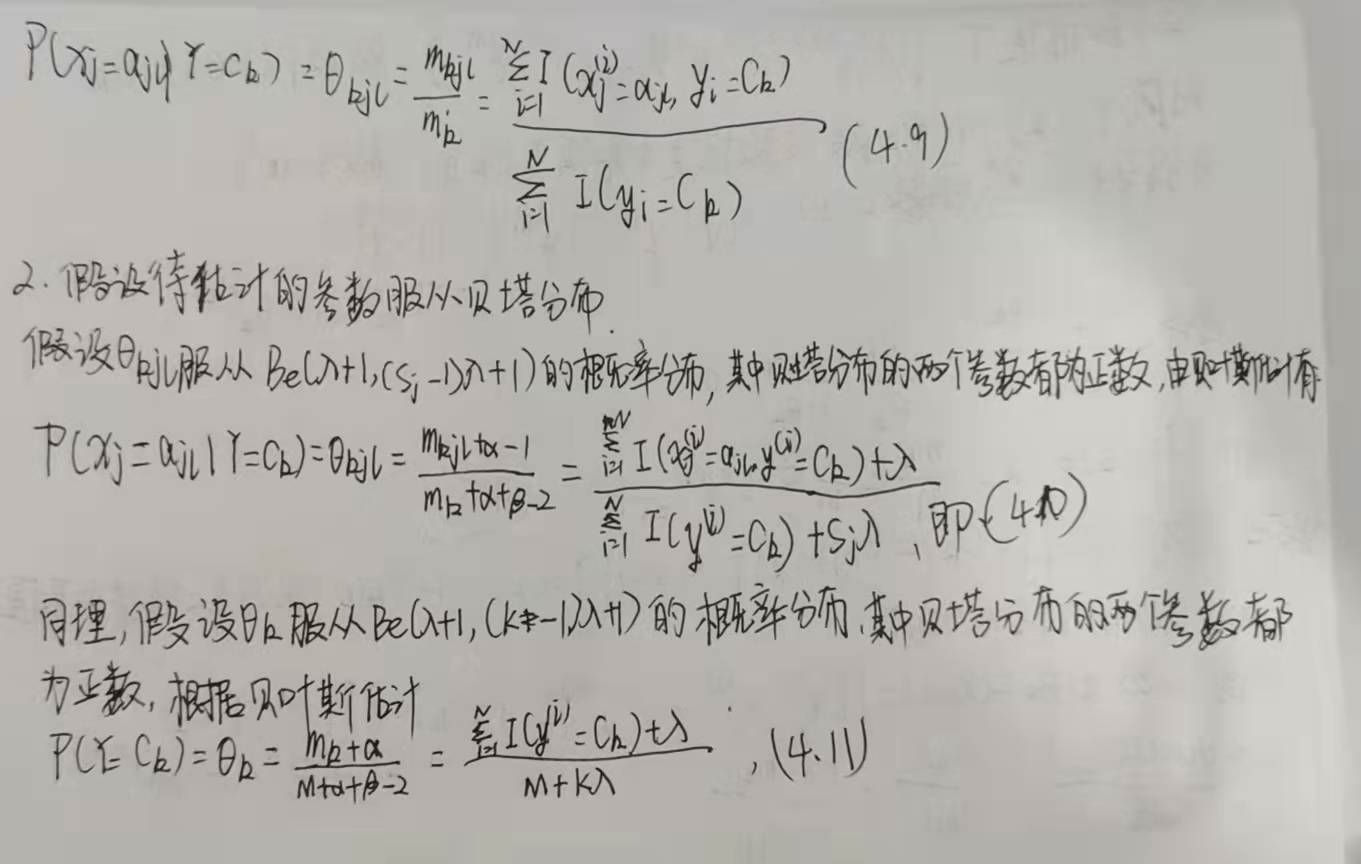 P(xj=ajl|Y=Ck)=θkjl=mkjl/mk=∑_{i=1}^{N} I(xj^(i)=ajl, yi=Ck) / ∑_{i=1}^{N} I(yi=Ck) (4.9)
2. 假设待估计的参数服从贝塔分布.
假设θkjl服从Be(λ+1,(Sj-1)λ+1)的概率分布,其中贝塔分布的两个参数都为正数,由贝叶斯估计有
P(xj=ajl|Y=Ck)=θkjl=(mkjl+α-1)/(mk+α+β-2)=(∑_{i=1}^{N} I(xj^(i)=ajl,y^(i)=Ck)+λ)/(∑_{i=1}^{N} I(y^(i)=Ck)+Sjλ),即(4.10)
同理,假设θk服从Be(λ+1,(K-1)λ+1)的概率分布,其中贝塔分布的两个参数都
为正数,根据贝叶斯估计
P(Y=Ck)=θk=(mk+α)/(M+α+β-2)=(∑_{i=1}^{N} I(y^(i)=Ck)+λ)/(M+Kλ),(4.11)